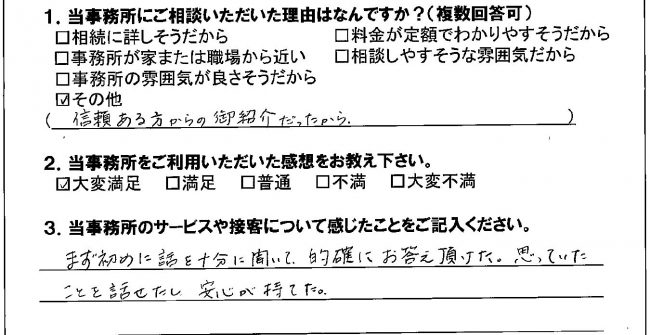 1. 当事務所にご相談いただいた理由はなんですか?(複数回答可)
□相続に詳しそうだから □料金が定額でわかりやすそうだから
□事務所が家または職場から近い □相談しやすそうな雰囲気だから
□事務所の雰囲気が良さそうだから
☑その他
( 信頼ある方からの御紹介だったから. )
2. 当事務所をご利用いただいた感想をお教え下さい。
☑大変満足 □満足 □普通 □不満 □大変不満
3. 当事務所のサービスや接客について感じたことをご記入ください。
まず初めに話を十分に聞いて、的確にお答え頂けた。思っていた
ことを話せたし 安心が持てた。